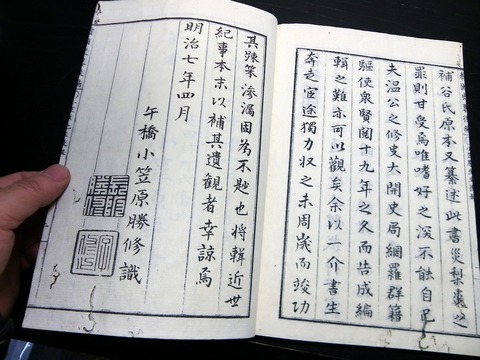 補谷氏原本又纂述此書災梨棗之
罪則甘受焉唯嗜好之深不能自已
夫温公之修史大開史局網羅群籍
駆使衆賢閲十九年之久而告成編
輯之難亦可以觀矣余以一介書生
奔走宦途獨力収之未周歳而竣功
其踈築滲漏固為不尠也將輯近世
紀事本末以補其遺観者幸諒焉
明治七年四月
午橋小笠原勝修識